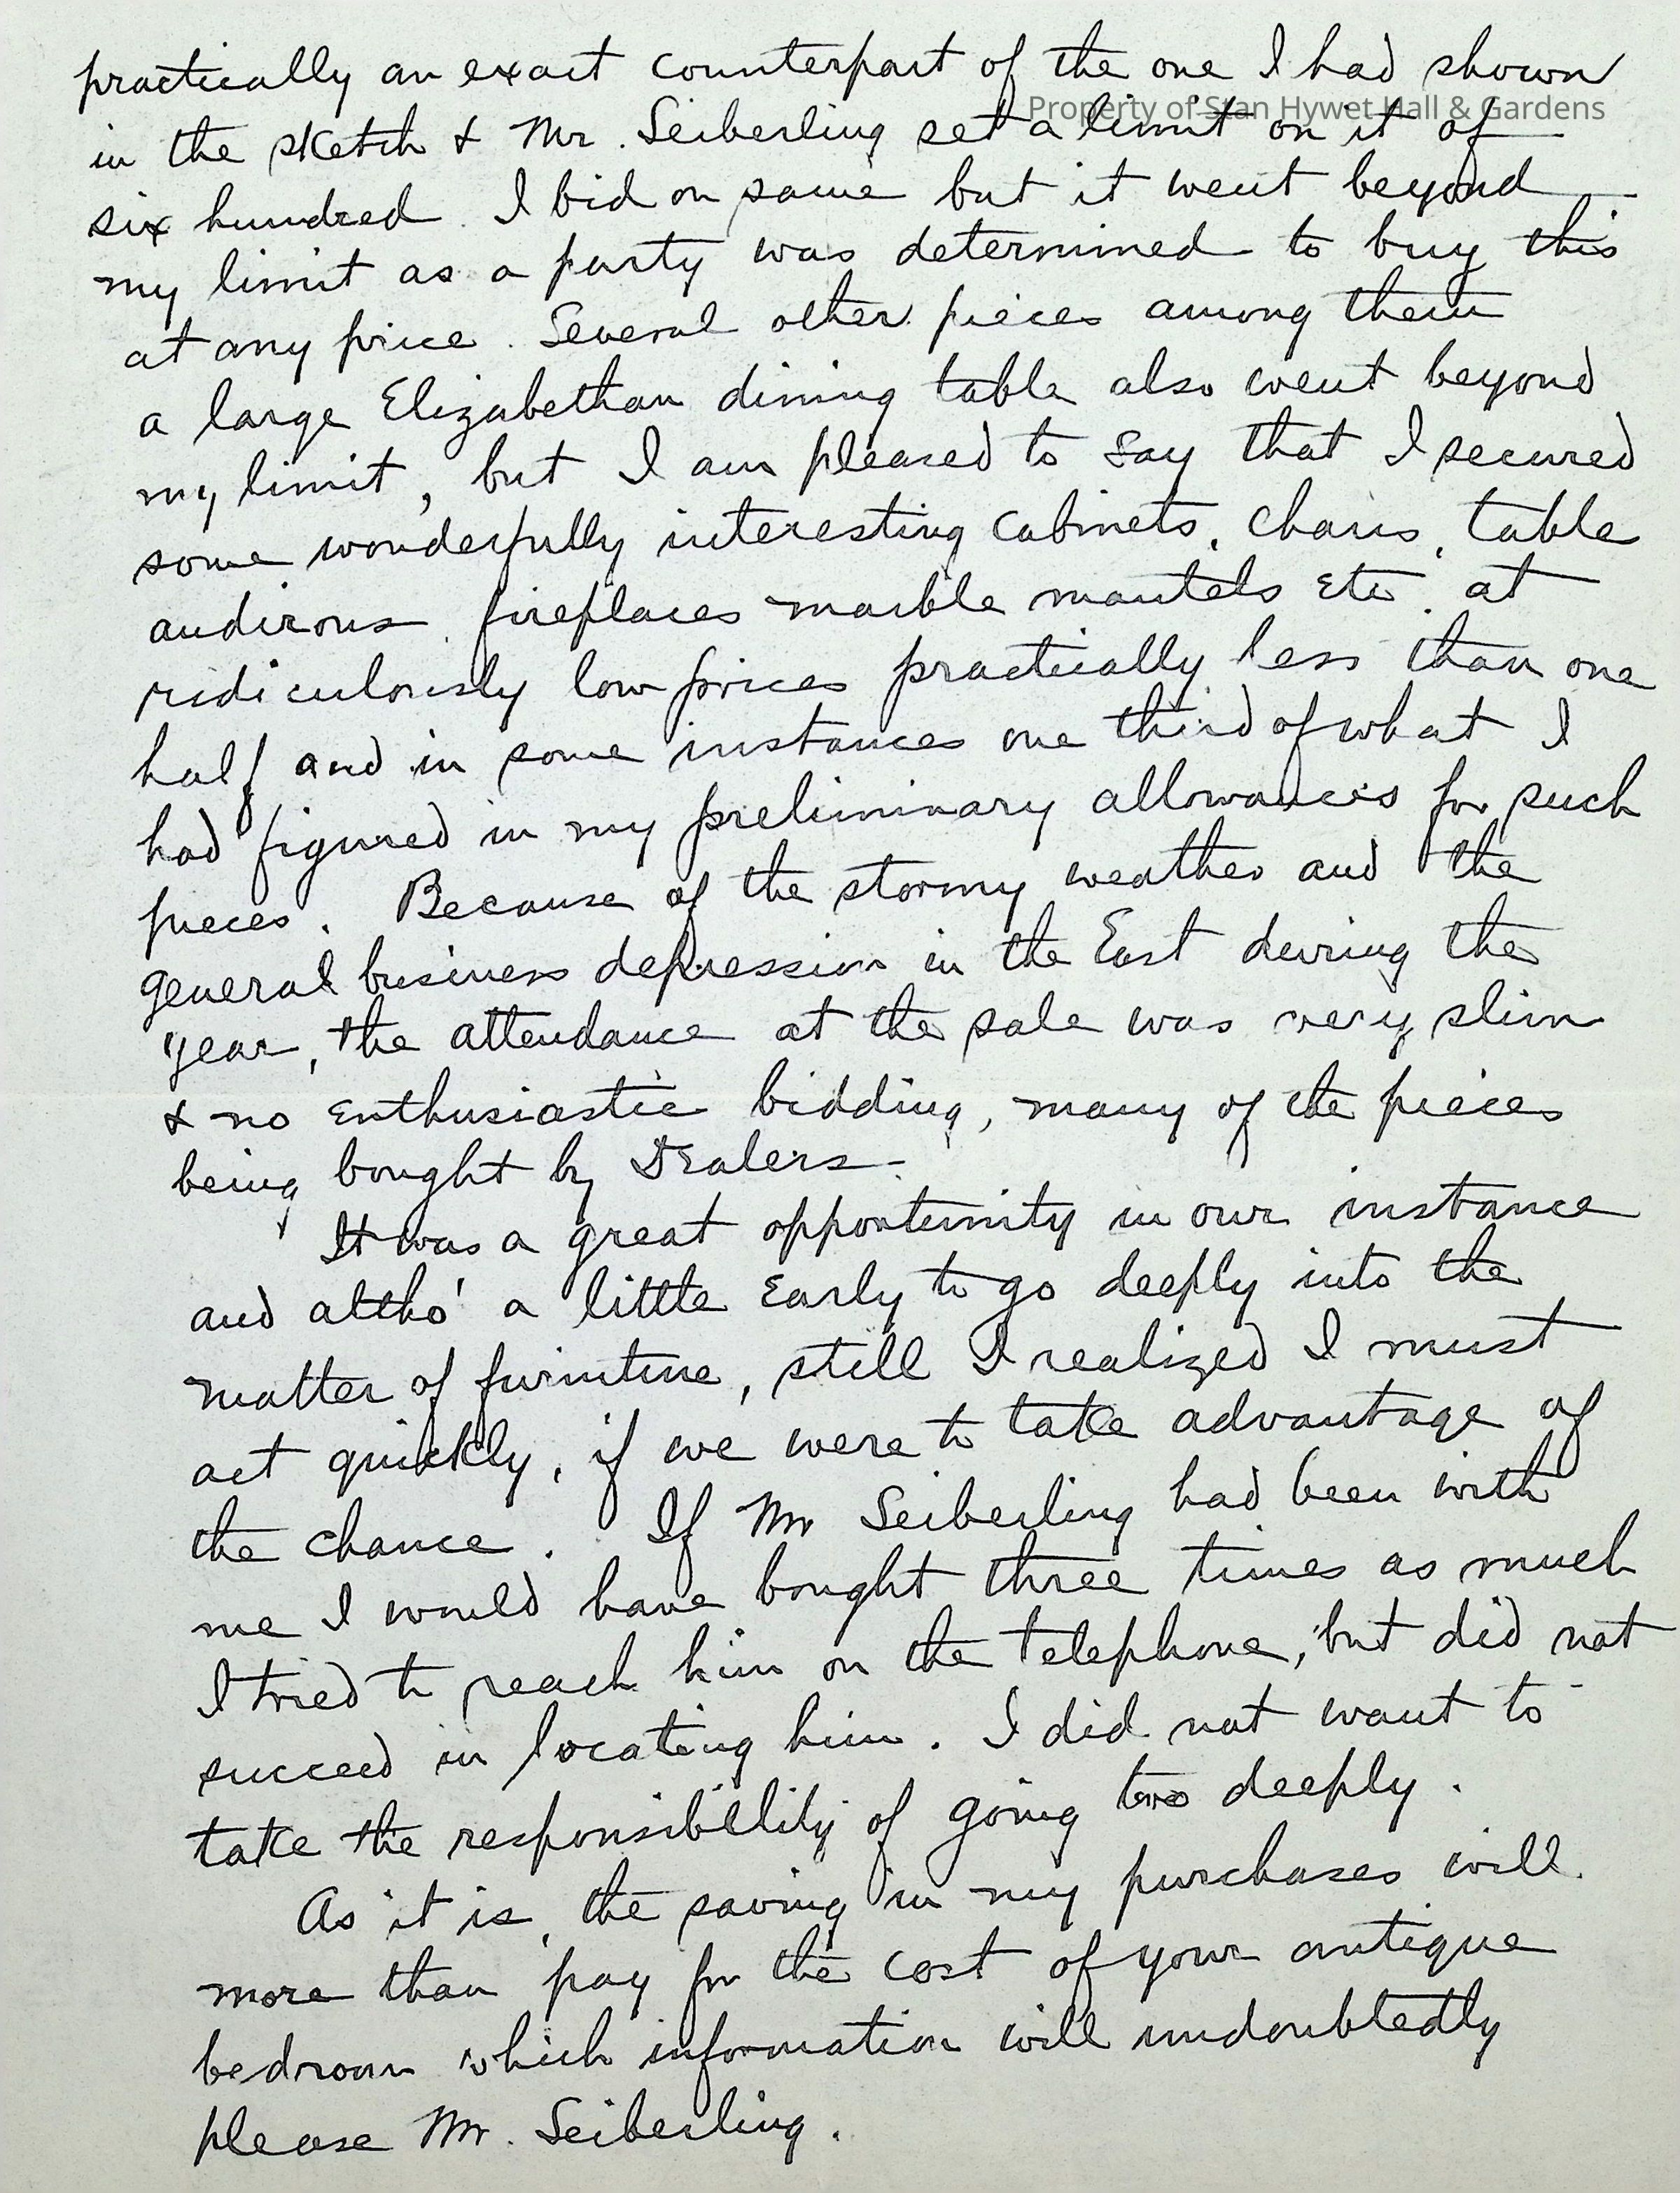 practically an exact counterpart of the one I had shown
Property of Stan Hywet Hall & Gardens
in the sketch & Mr. Seiberling set a limit on it of
six hundred. I bid on same but it went beyond
my limit as a party was determined to buy this
at any price. Several other pieces among them
a large Elizabethan dining table also went beyond
my limit, but I am pleased to say that I secured
some wonderfully interesting cabinets, chairs, table
andirons, fireplaces marble mantels etc. at
ridiculously low prices practically less than one
half and in some instances one third of what I
had figured in my preliminary allowances for such
pieces. Because of the stormy weather and the
general business depression in the East during the
year, the attendance at the sale was very slim
& no enthusiastic bidding, many of the pieces
being bought by Dealers-
It was a great opportunity in our instance
and altho' a little early to go deeply into the
matter of furniture, still I realized I must
act quickly, if we were to take advantage of
the chance. If Mr Seiberling had been with
me I would have bought three times as much
I tried to reach him on the telephone, but did not
succeed in locating him. I did not want to
take the responsibility of going too deeply.
As it is, the saving in my purchases will
more than pay for the cost of your antique
bedroom which information will undoubtedly
please Mr. Seiberling.